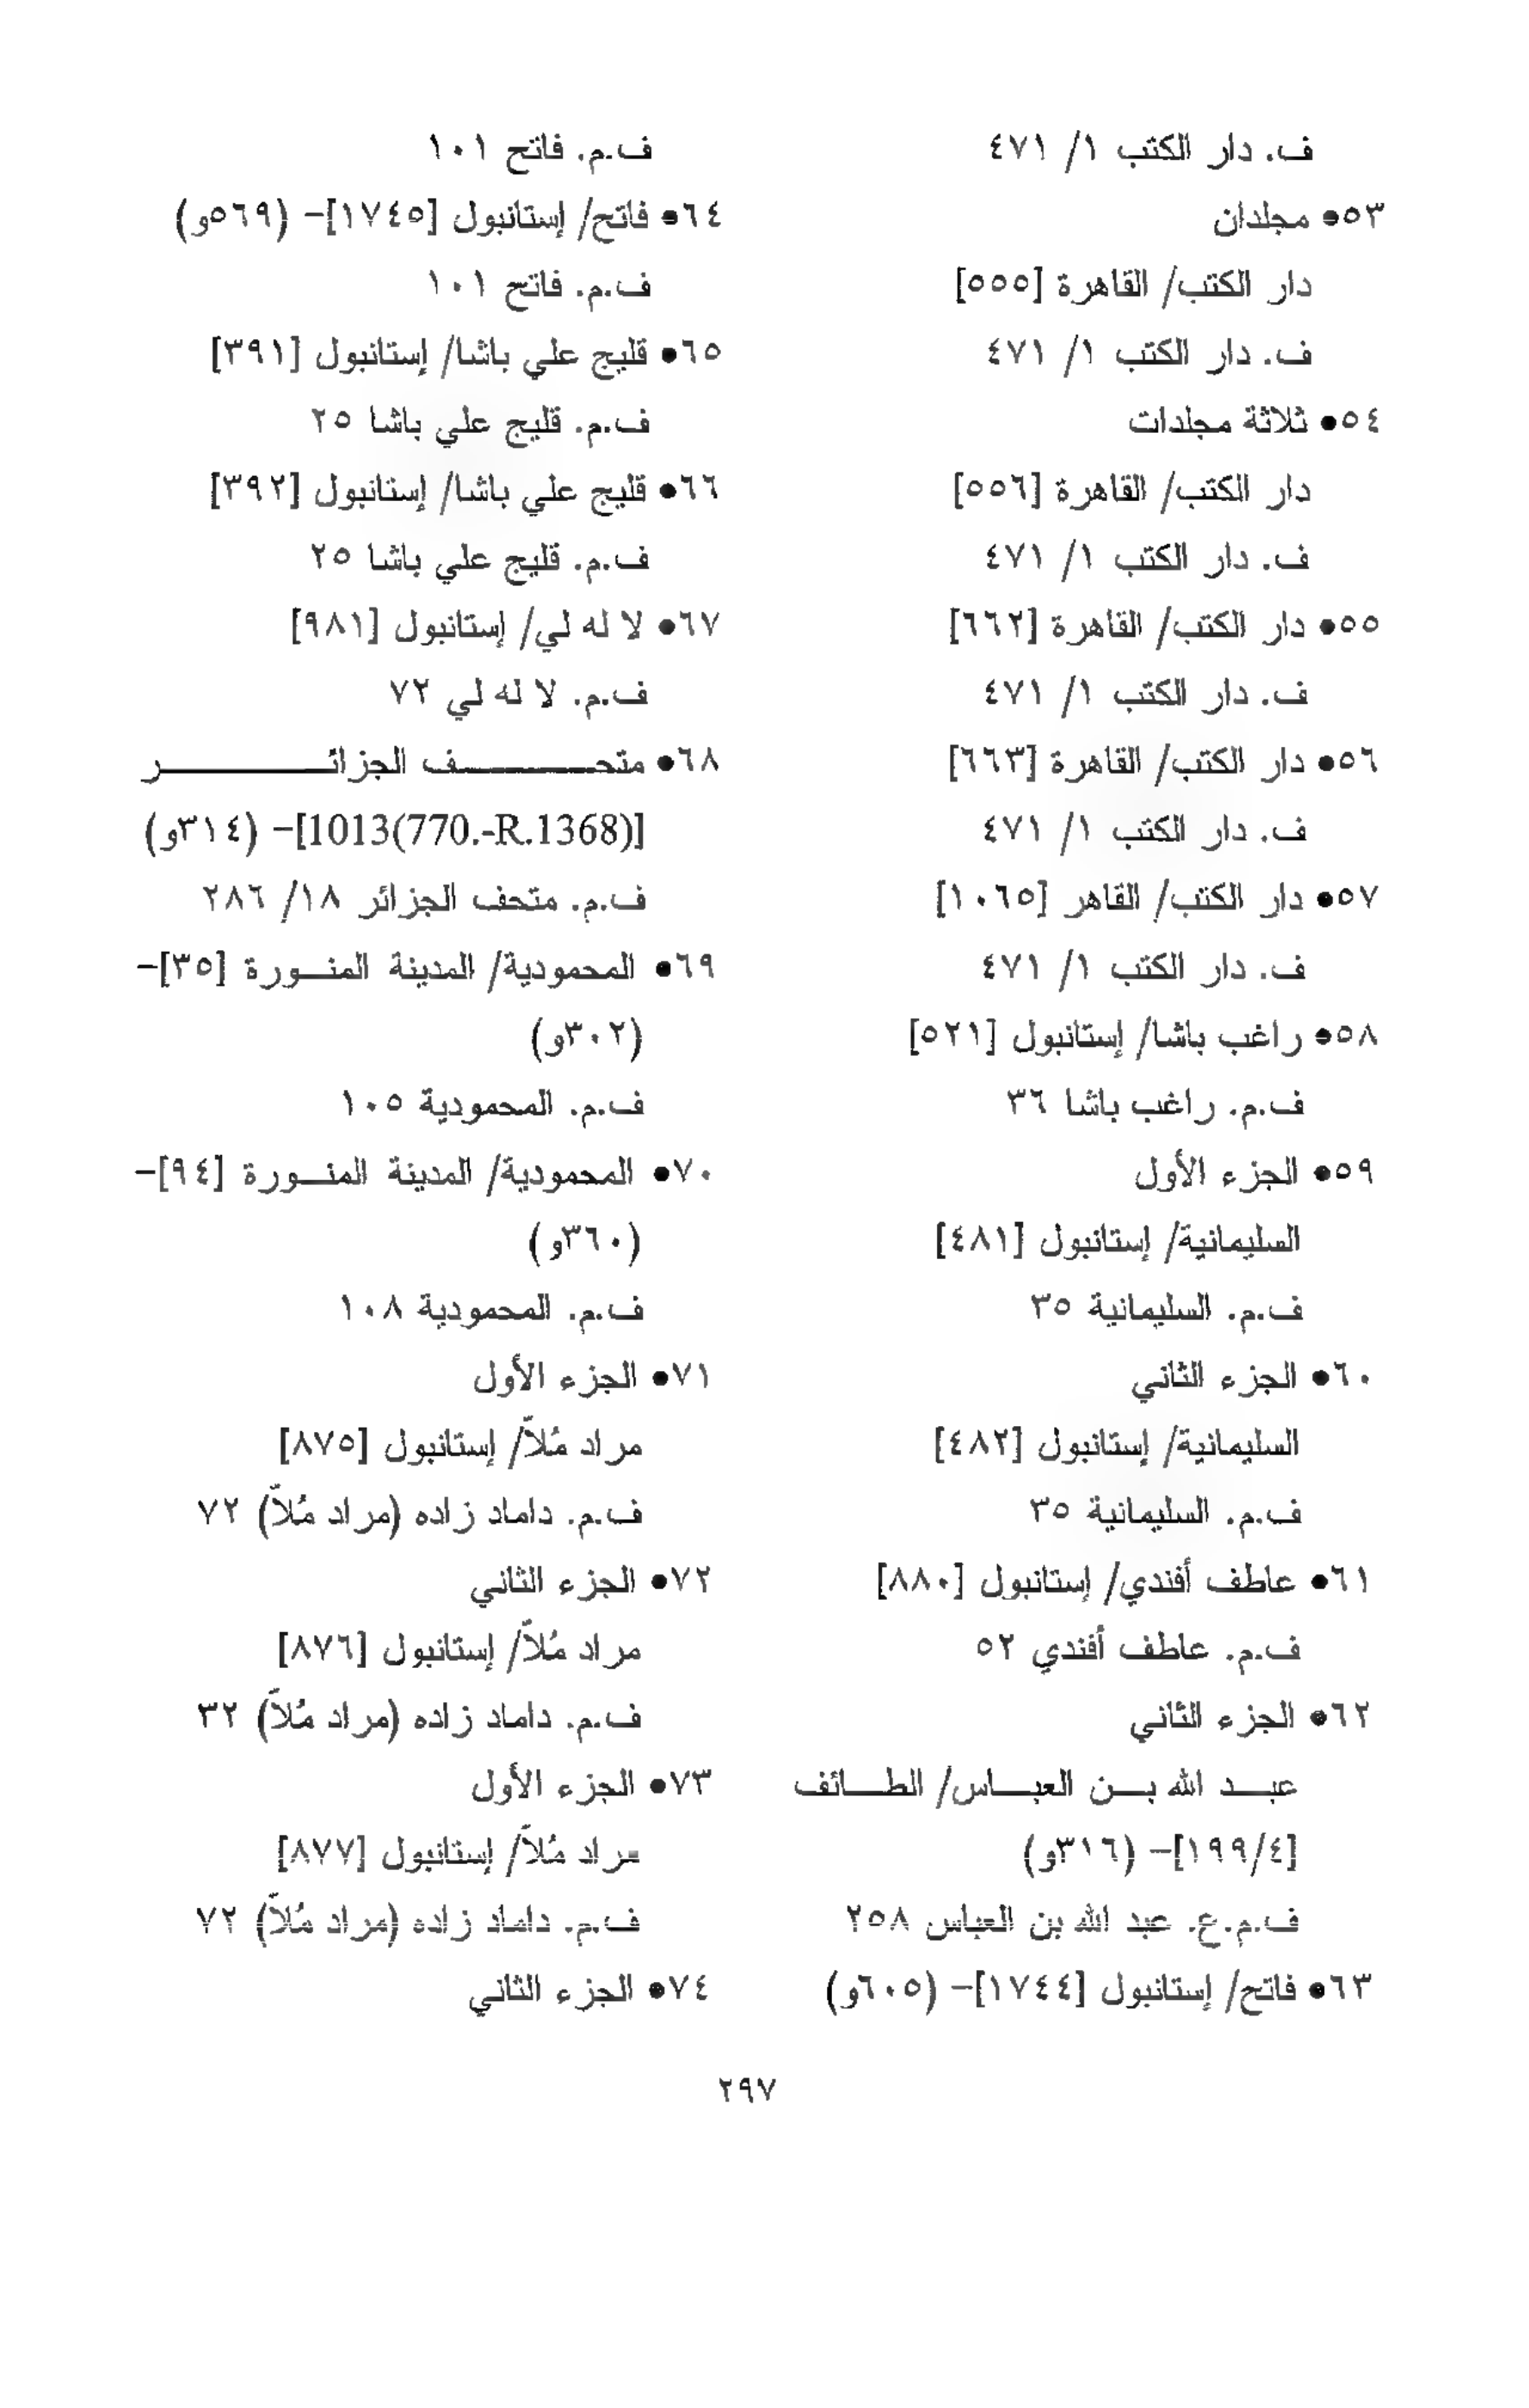 ف. دار الكتب ١/ ٤٧١
٥٣• مجلدان
دار الكتب/ القاهرة [٥٥٥]
ف. دار الكتب ١/ ٤٧١
٥٤• ثلاثة مجلدات
دار الكتب/ القاهرة [٥٥٦]
ف. دار الكتب ١/ ٤٧١
٥٥• دار الكتب/ القاهرة [٦٦٢]
ف. دار الكتب ١/ ٤٧١
٥٦• دار الكتب/ القاهرة [٦٦٣]
ف. دار الكتب ١/ ٤٧١
٥٧• دار الكتب/ القاهر [١٠٦٥]
ف. دار الكتب ١/ ٤٧١
٥٨• راغب باشا/ إستانبول [٥٢١]
ف.م. راغب باشا ٣٦
٥٩• الجزء الأول
السليمانية/ إستانبول [٤٨١]
ف.م. السليمانية ٣٥
٦٠• الجزء الثاني
السليمانية/ إستانبول [٤٨٢]
ف.م. السليمانية ٣٥
٦١• عاطف أفندي/ إستانبول [٨٨٠]
ف.م. عاطف أفندي ٥٢
٦٢• الجزء الثاني
عبـــد الله بـــن العبـــاس/ الطـــائف
[١٩٩/٤]- (٣١٦و)
ف.م.ع. عبد الله بن العباس ٢٥٨
٦٣• فاتح/ إستانبول [١٧٤٤]- (٦٠٥و)
ف.م. فاتح ١٠١
٦٤• فاتح/ إستانبول [١٧٤٥]- (٥٦٩و)
ف.م. فاتح ١٠١
٦٥• قليج علي باشا/ إستانبول [٣٩١]
ف.م. قليج علي باشا ٢٥
٦٦• قليج علي باشا/ إستانبول [٣٩٢]
ف.م. قليج علي باشا ٢٥
٦٧• لا له لي/ إستانبول [٩٨١]
ف.م. لا له لي ٧٢
٦٨• متحــــــــف الجزائــــــــــر
[1013(770.-R.1368)]- (٣١٤و)
ف.م. متحف الجزائر ١٨/ ٢٨٦
٦٩• المحمودية/ المدينة المنـــورة [٣٥]-
(٣٠٢و)
ف.م. المحمودية ١٠٥
٧٠• المحمودية/ المدينة المنـــورة [٩٤]-
(٣٦٠و)
ف.م. المحمودية ١٠٨
٧١• الجزء الأول
مراد مُلاّ/ إستانبول [٨٧٥]
ف.م. داماد زاده (مراد مُلاّ) ٧٢
٧٢• الجزء الثاني
مراد مُلاّ/ إستانبول [٨٧٦]
ف.م. داماد زاده (مراد مُلاّ) ٣٢
٧٣• الجزء الأول
مراد مُلاّ/ إستانبول [٨٧٧]
ف.م. داماد زاده (مراد مُلاّ) ٧٢
٧٤• الجزء الثاني
٢٩٧